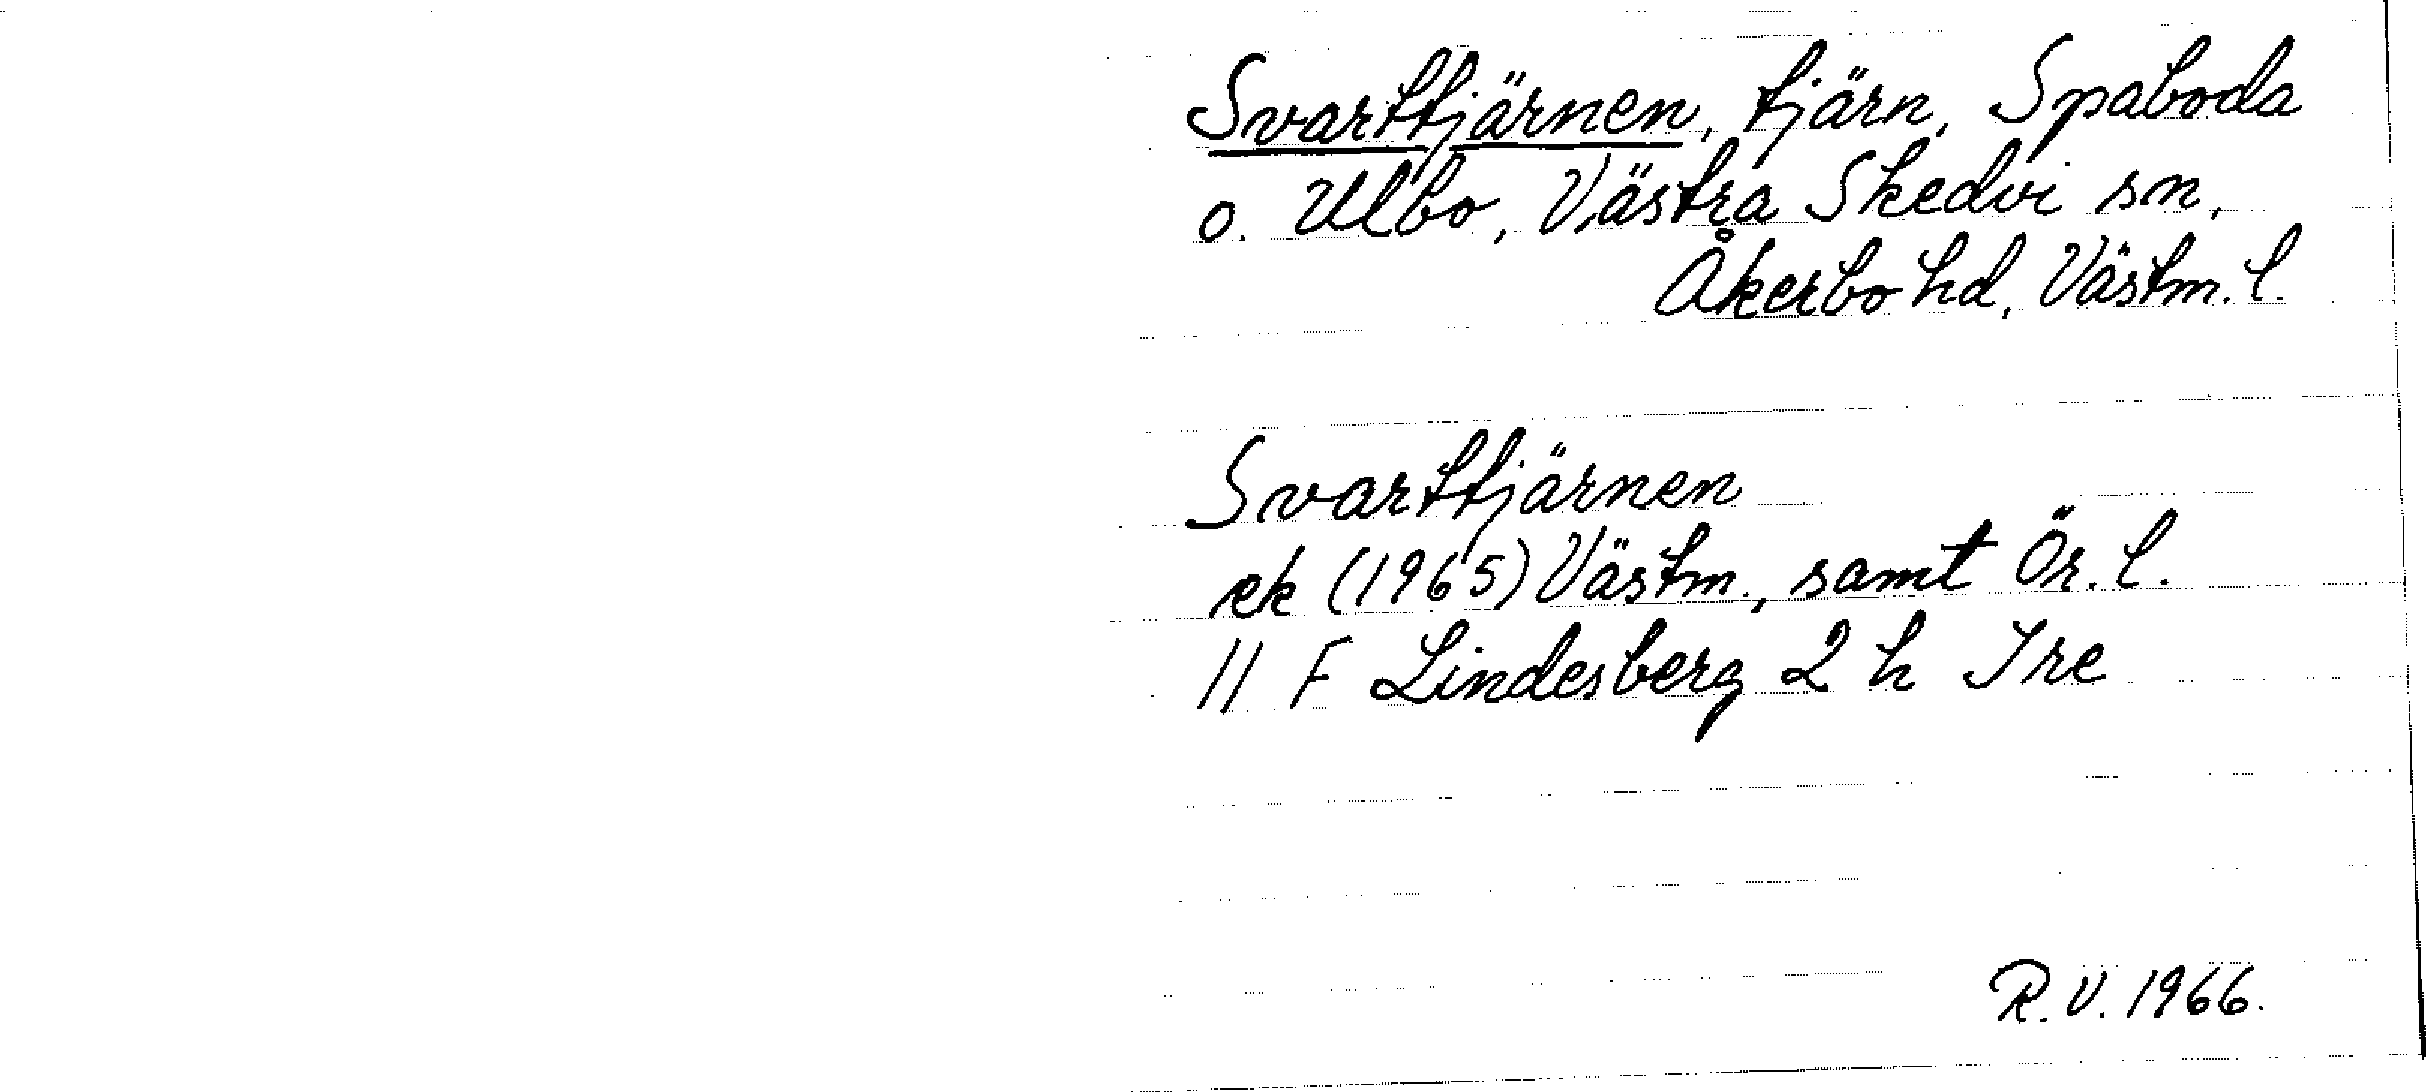 Svarttjärnen, tjärn, Spaboda
o. Ulbo, Västra Skedvi sn,
Åkerbo hd, Västm. l.
Svarttjärnen
ek (1965) Västm., samt Ör. l.
11 F Lindesberg 2 h Ire
R.V. 1966.